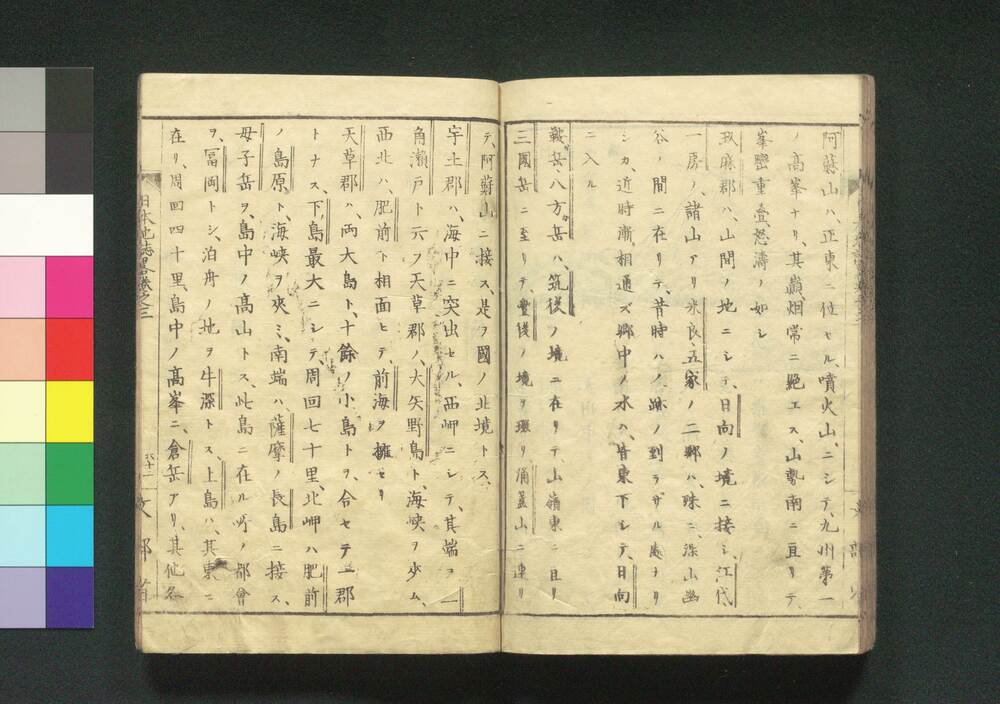 阿蘇山ハ、正東ニ位セル、噴火山、ニシテ、九州第一
ノ高峯ナリ、其巓、烟常ニ絶エス、山勢南ニ亘リテ、
峯巒重畳、怒濤ノ如シ
球麻郡ハ、山間ノ地ニシテ、日向ノ境ニ接シ、江代、
一房ノ諸山アリ米良、五家ノ二郷ハ、殊ニ深山幽
谷ノ間ニ在リテ、昔時ハ人跡ノ到ラザル處ナリ
シカ、近時漸、相通ズ郷中ノ水ハ、皆東下シテ、日向
ニ入ル
鞍岳、八方岳ハ、筑後ノ境ニ在リテ、山嶺東ニ亘リ
三國岳ニ至リテ、豊後ノ境ヲ環リ涌蓋山ニ連リ
テ、阿蘇山ニ接ス、是ヲ國ノ北境トス、
宇土郡ハ、海中ニ突出セル、西岬ニシテ、其端ヲ一
角瀬戸ト云フ天草郡ノ、大矢野島ト、海峡ヲ歩ム、
西北ハ、肥前ト相面ヒテ、前海ヲ擁セリ
天草郡ハ、両大島ト、十餘ノ小島トヲ、合セテ一郡
トナス、下島最大ニシテ、周回七十里、北岬ハ肥前
ノ島原ト、海峡ヲ夾ミ、南端ハ、薩摩ノ長島ニ接ス、
母子岳ヲ、島中ノ高山トス、此島ニ在ル所ノ都會
ヲ、冨岡トシ、泊舟ノ地ヲ牛深トス、上島ハ、其東ニ
在リ、周四四十里、島中ノ高峯ニ、倉岳アリ、其他各
日本地誌略巻之三
六十一
文部省